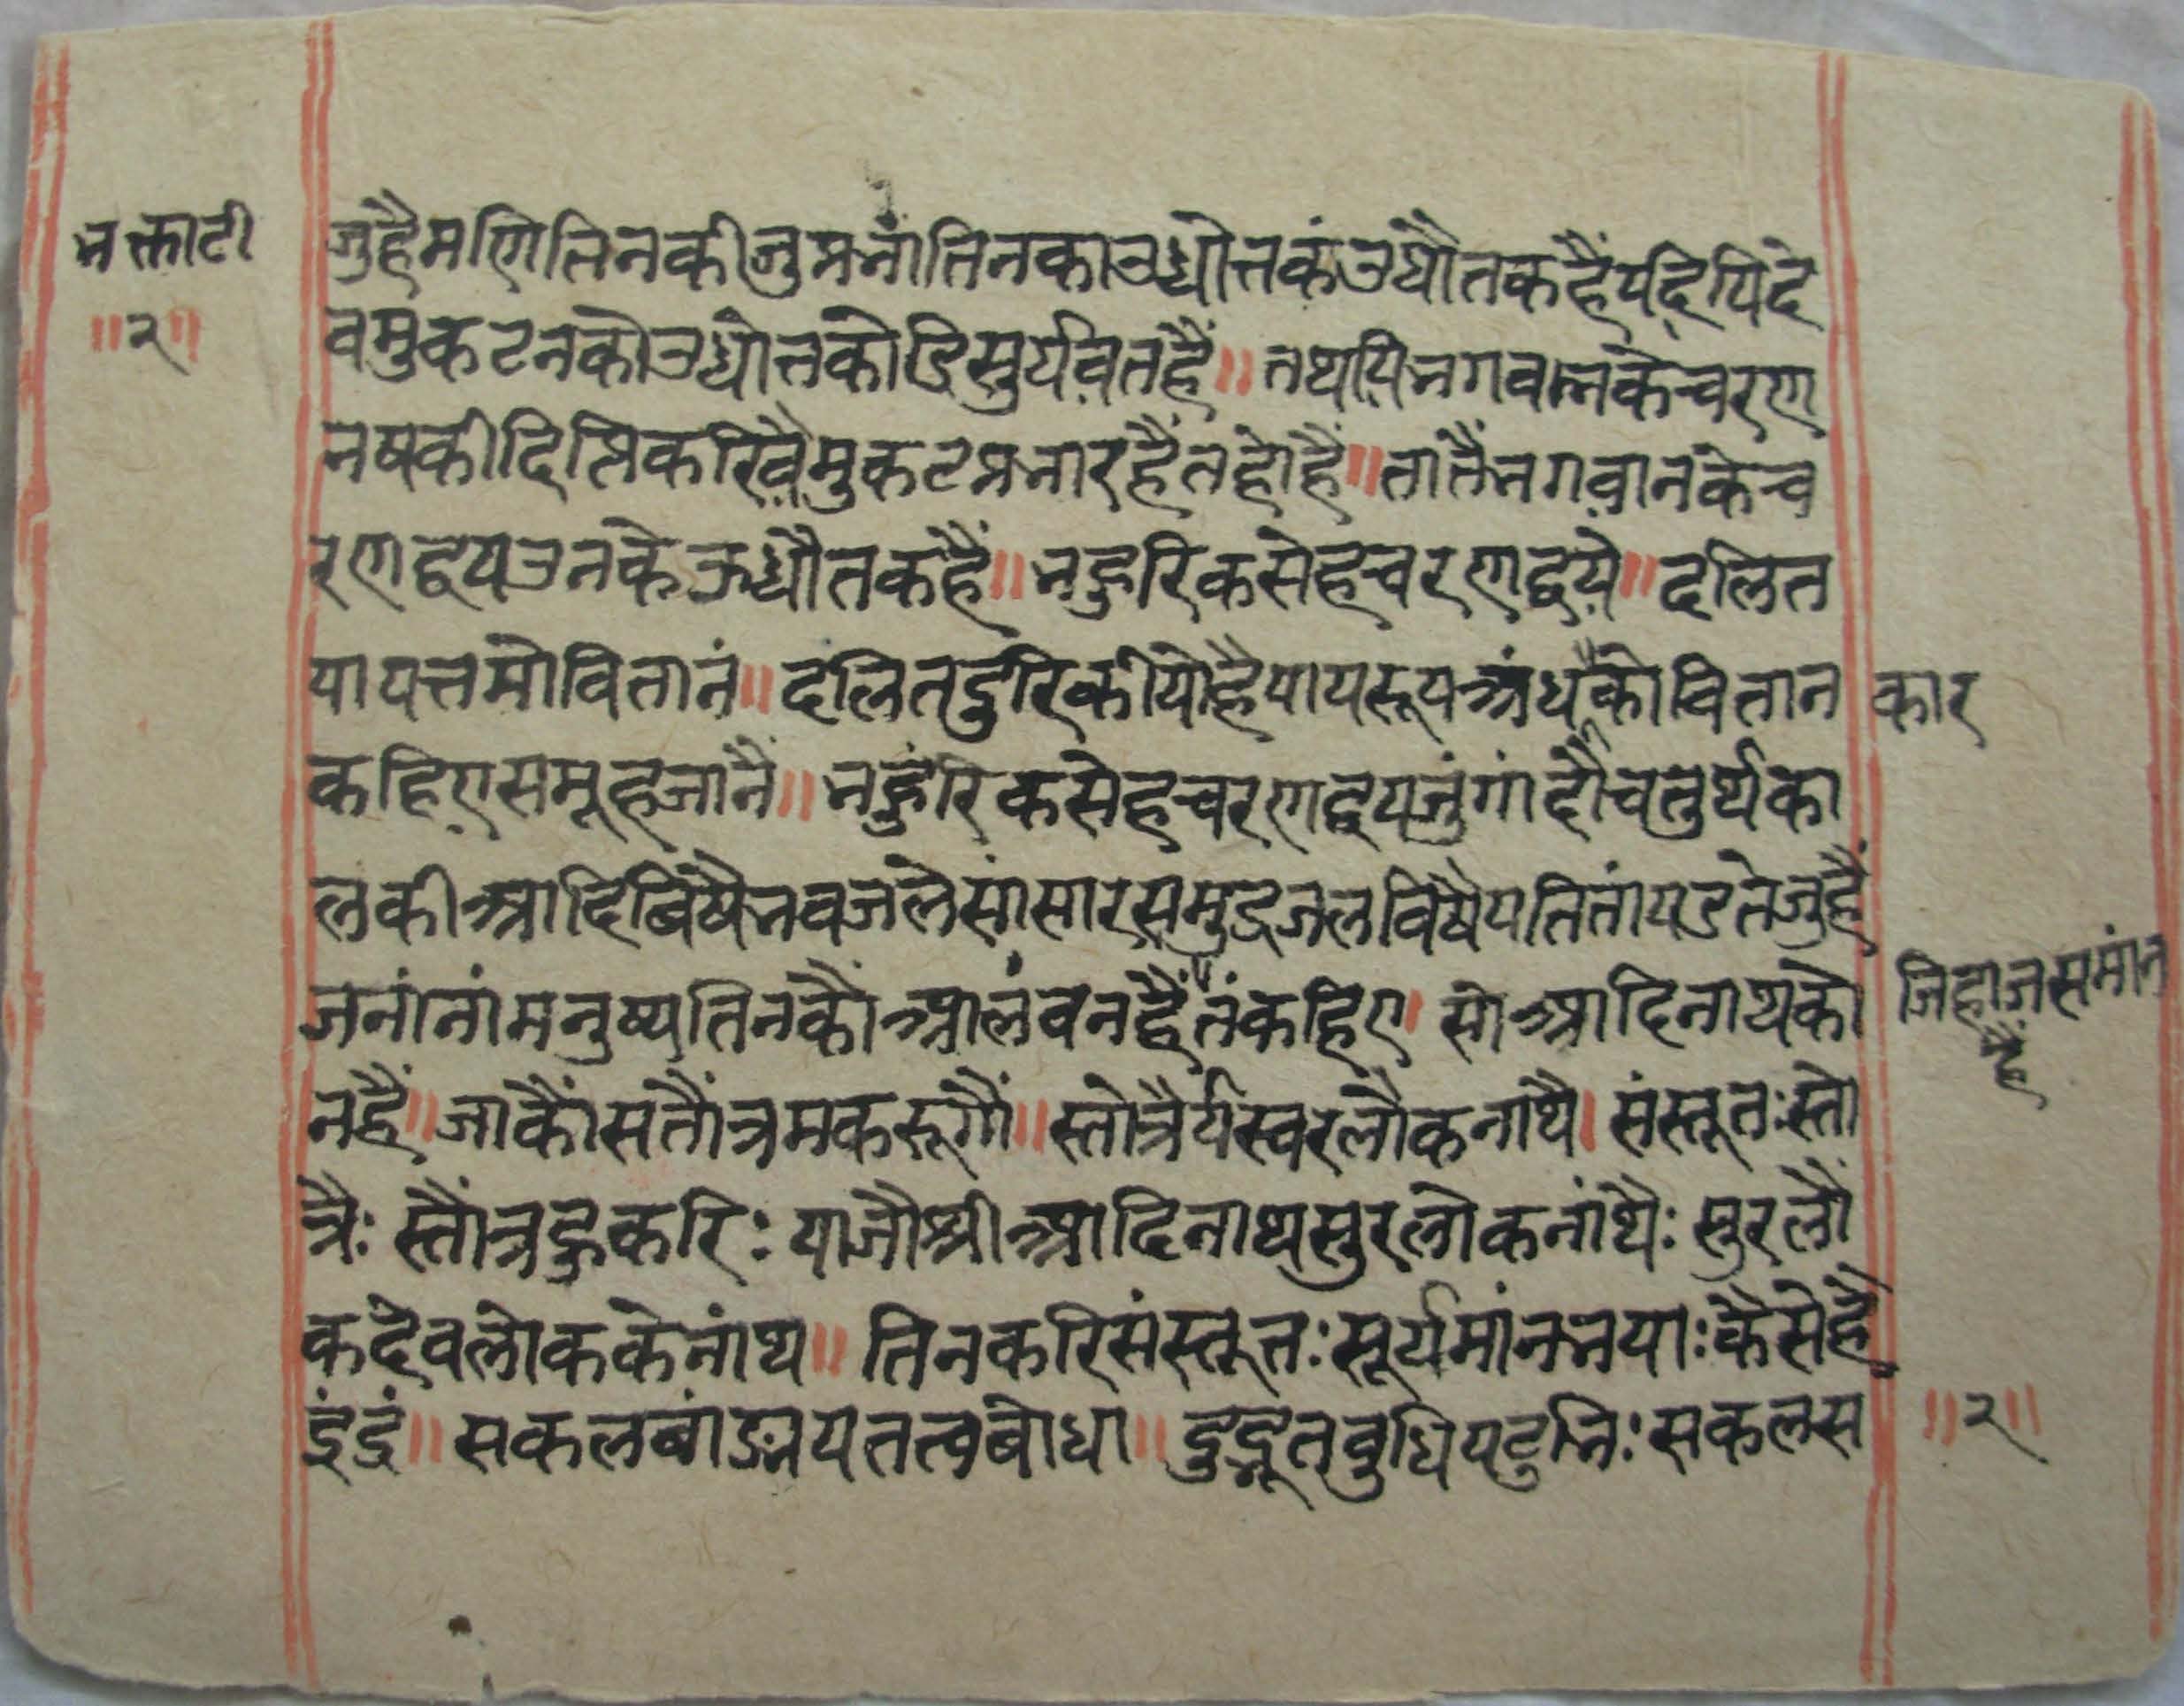 भक्ताटी
॥२॥
जुहैमणितिनकीजुप्रभांतिनकाउद्योतकंउद्यौतकहैंयद्दिपिदे
वमुकटनकोउद्योतकोटिसुर्यवतहैं॥तथापिभगवानकेचरण
नषकीदिप्तिकरिवैमुकटप्रभारहैतहोहैं॥तातैंभगवानकेच
रणद्वयउनकेऊद्यौतकहैं॥बहुरिकसेहचरणद्वये॥दलित
पापत्तमोवितानं॥दलितदुरिकीयोहैपापरूपअंध॥कोवितान
कार
कहिएसमूहजानै॥बहुंरिकसेहचरणद्वयजुंगांदौचतुर्थका
लकीआदिबिंषैभवजलेसांसारसमुद्रजलविषैपतितांपडतेजुहैं
जनांनांमनुष्यतिनकौंआलंवनहैं॥तंकहिए।सोआदिनाथको
जिहाजसमांन
हैं
नहैं॥जाकौंसतौंत्रमकरूगौं॥स्तोत्रैर्यस्वरलौकनाथै।संस्तूतःस्तो
त्रैःस्तौंत्रहुकरि:याजौश्रीआदिनाथसुरलोकनांथैःसुरलौं
कदेवलोककेनांथ॥तिनकरिसंस्तूतःसूर्यमांनभयाःकैसेहैं
इंद्रं॥सकलबांङ्मयतत्वबोधा॥दुद्भूतवुधिपटुभिःसकलस
॥२॥